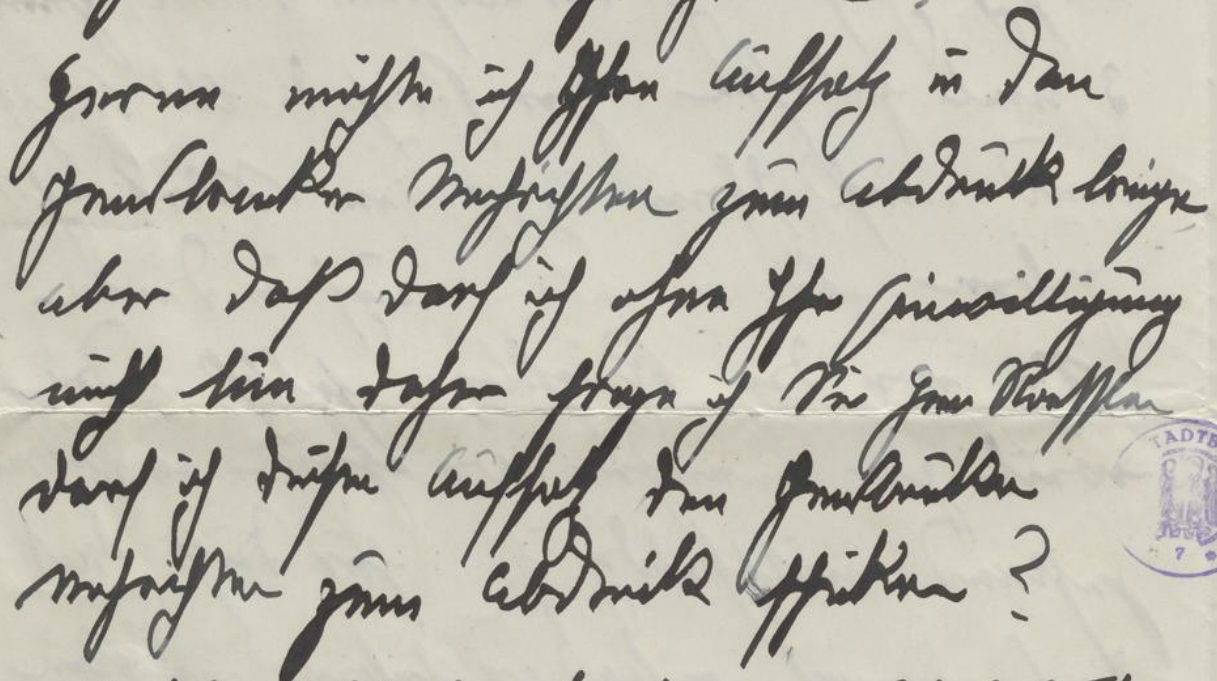 Gerne möchte ich Ihren Aufsatz in den
Innsbrucker Nachrichten zum Abdruck bringe
aber daß darf ich ohne Ihre Einwilligung
nicht tun daher frage ich Sie Herr Roessler
darf ich diesen Aufsatz den Innsbrucker
Nachrichten zum Abdruck schicken ?
TADTB
7 *